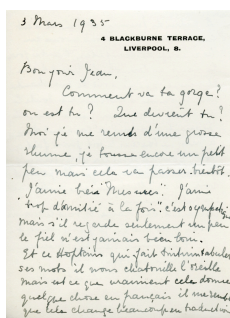 3 Mars 1935
4 BLACKBURNE TERRACE,
LIVERPOOL, 8.
Bonjour Jean,
Comment va ta gorge?
ou est tu? Que devient tu?
Moi je me remets d'une grosse
rhume, je tousse encore un petit
peu mais cela va passer bientôt.
J'aime bien "Messieurs". "J'ai
trop d'amitié à la fois", c'est
mais s'il regarde seulement un peu
le fiel n'est jamais bien loin.
Et ce Hopkins qui fait tintinnabuler
ses mots il nous chatouille l'oreille
mais est ce que vraiment cela donne
quelque chose en français il me semble
que cela change beaucoup en traduction